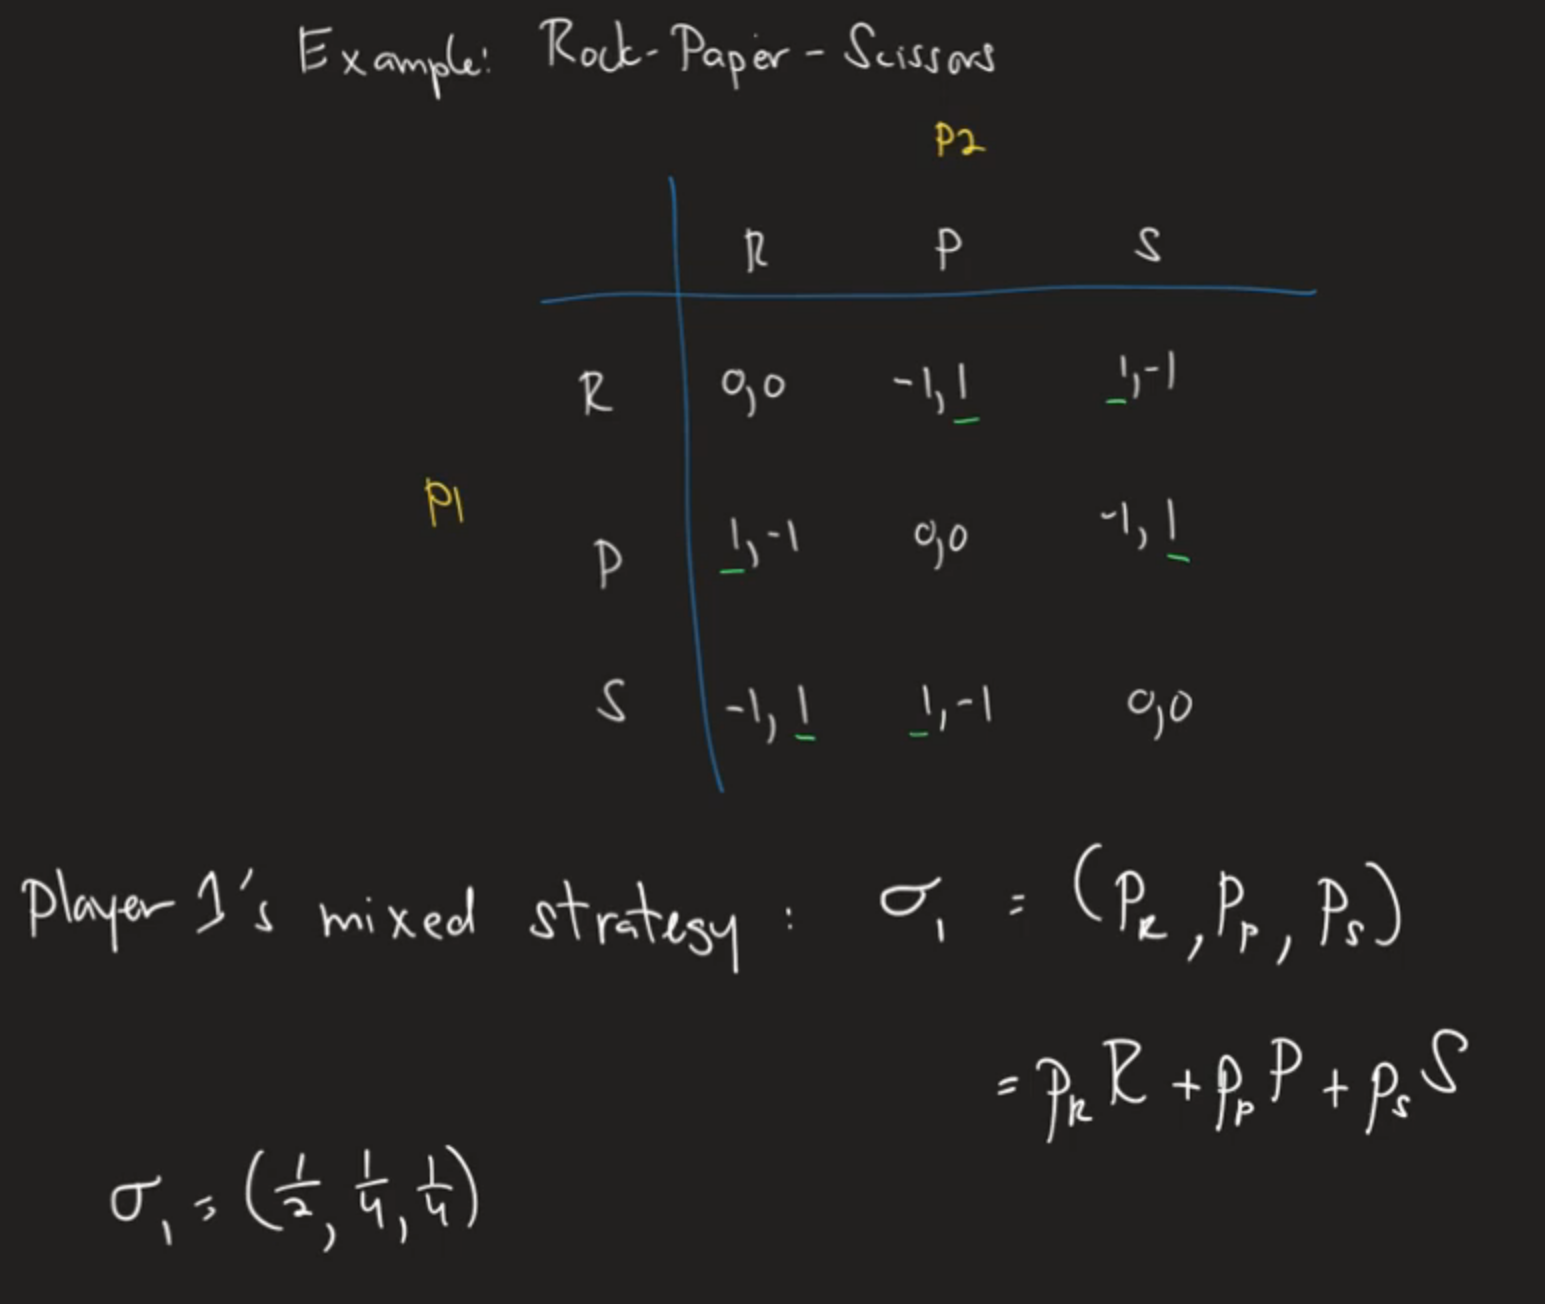 Example: Rock-Paper-Scissors
P2
R P S
R 0,0 -1,1 1,-1
P1
P 1,-1 0,0 -1,1
S -1,1 1,-1 0,0
Player 1's mixed strategy: σ₁ = (P_R, P_P, P_S)
= p_R R + p_P P + p_S S
σ₁ = (1/2, 1/4, 1/4)